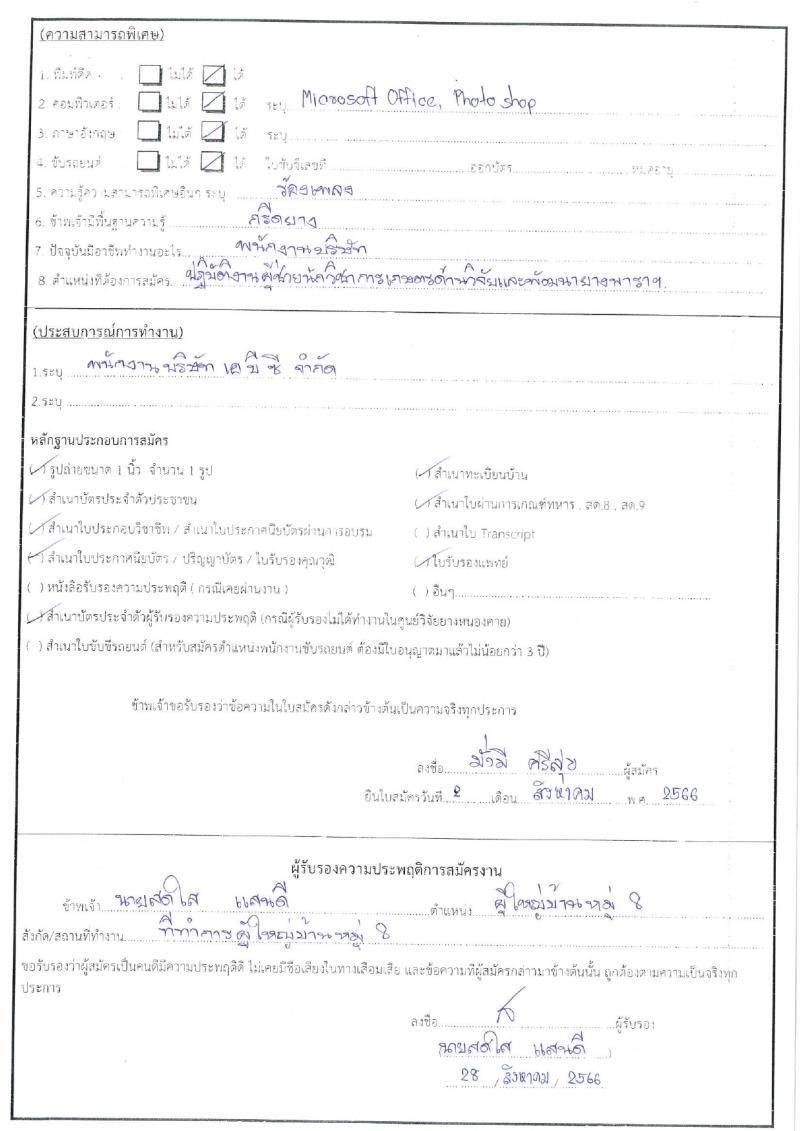 (ความสามารถพิเศษ)
1. พิมพ์ดีด ไม่ได้ ได้
2. คอมพิวเตอร์ ไม่ได้ ได้ ระบุ Microsoft Office, Photo shop
3. ภาษาอังกฤษ ไม่ได้ ได้ ระบุ
4. ขับรถยนต์ ไม่ได้ ได้ ใบขับขี่เลขที่ ออกบัตร หมดอายุ
5. ความรู้ความสามารถพิเศษอื่นๆ ระบุ ร้องเพลง
6. ข้าพเจ้ามีพื้นฐานความรู้ กรีดยาง
7. ปัจจุบันมีอาชีพทำงานอะไร พนักงานบริษัท
8. ตำแหน่งที่ต้องการสมัคร ปฏิบัติงานผู้ช่วยนักวิชาการเกษตรด้านวิจัยและพัฒนายางพาราฯ
(ประสบการณ์การทำงาน)
1.ระบุ พนักงานบริษัท เอ บี ซี จำกัด
2.ระบุ
หลักฐานประกอบการสมัคร
(✓) รูปถ่ายขนาด 1 นิ้ว จำนวน 1 รูป (✓) สำเนาทะเบียนบ้าน
(✓) สำเนาบัตรประจำตัวประชาชน (✓) สำเนาใบผ่านการเกณฑ์ทหาร , สด.8 , สด.9
(✓) สำเนาใบประกอบวิชาชีพ / สำเนาใบประกาศนียบัตรผ่านการอบรม ( ) สำเนาใบ Transcript
(✓) สำเนาใบประกาศนียบัตร / ปริญญาบัตร / ใบรับรองคุณวุฒิ (✓) ใบรับรองแพทย์
( ) หนังสือรับรองความประพฤติ ( กรณีเคยผ่านงาน ) ( ) อื่นๆ
(✓) สำเนาบัตรประจำตัวผู้รับรองความประพฤติ (กรณีผู้รับรองไม่ได้ทำงานในศูนย์วิจัยยางหนองคาย)
( ) สำเนาใบขับขี่รถยนต์ (สำหรับสมัครตำแหน่งพนักงานขับรถยนต์ ต้องมีใบอนุญาตมาแล้วไม่น้อยกว่า 3 ปี)
ข้าพเจ้าขอรับรองว่าข้อความในใบสมัครดังกล่าวข้างต้นเป็นความจริงทุกประการ
ลงชื่อ มั่งมี ศรีสุข ผู้สมัคร
ยื่นใบสมัครวันที่ 2 เดือน สิงหาคม พ.ศ. 2566
ผู้รับรองความประพฤติการสมัครงาน
ข้าพเจ้า นายสดใส แสนดี ตำแหน่ง ผู้ใหญ่บ้านหมู่ 8
สังกัด/สถานที่ทำงาน ที่ทำการผู้ใหญ่บ้านหมู่ 8
ขอรับรองว่าผู้สมัครเป็นคนดีมีความประพฤติดี ไม่เคยมีชื่อเสียงในทางเสื่อมเสีย และข้อความที่ผู้สมัครกล่าวมาข้างต้นนั้น ถูกต้องตามความเป็นจริงทุก
ประการ
ลงชื่อ ผู้รับรอง
นายสดใส แสนดี )
28 / สิงหาคม / 2566